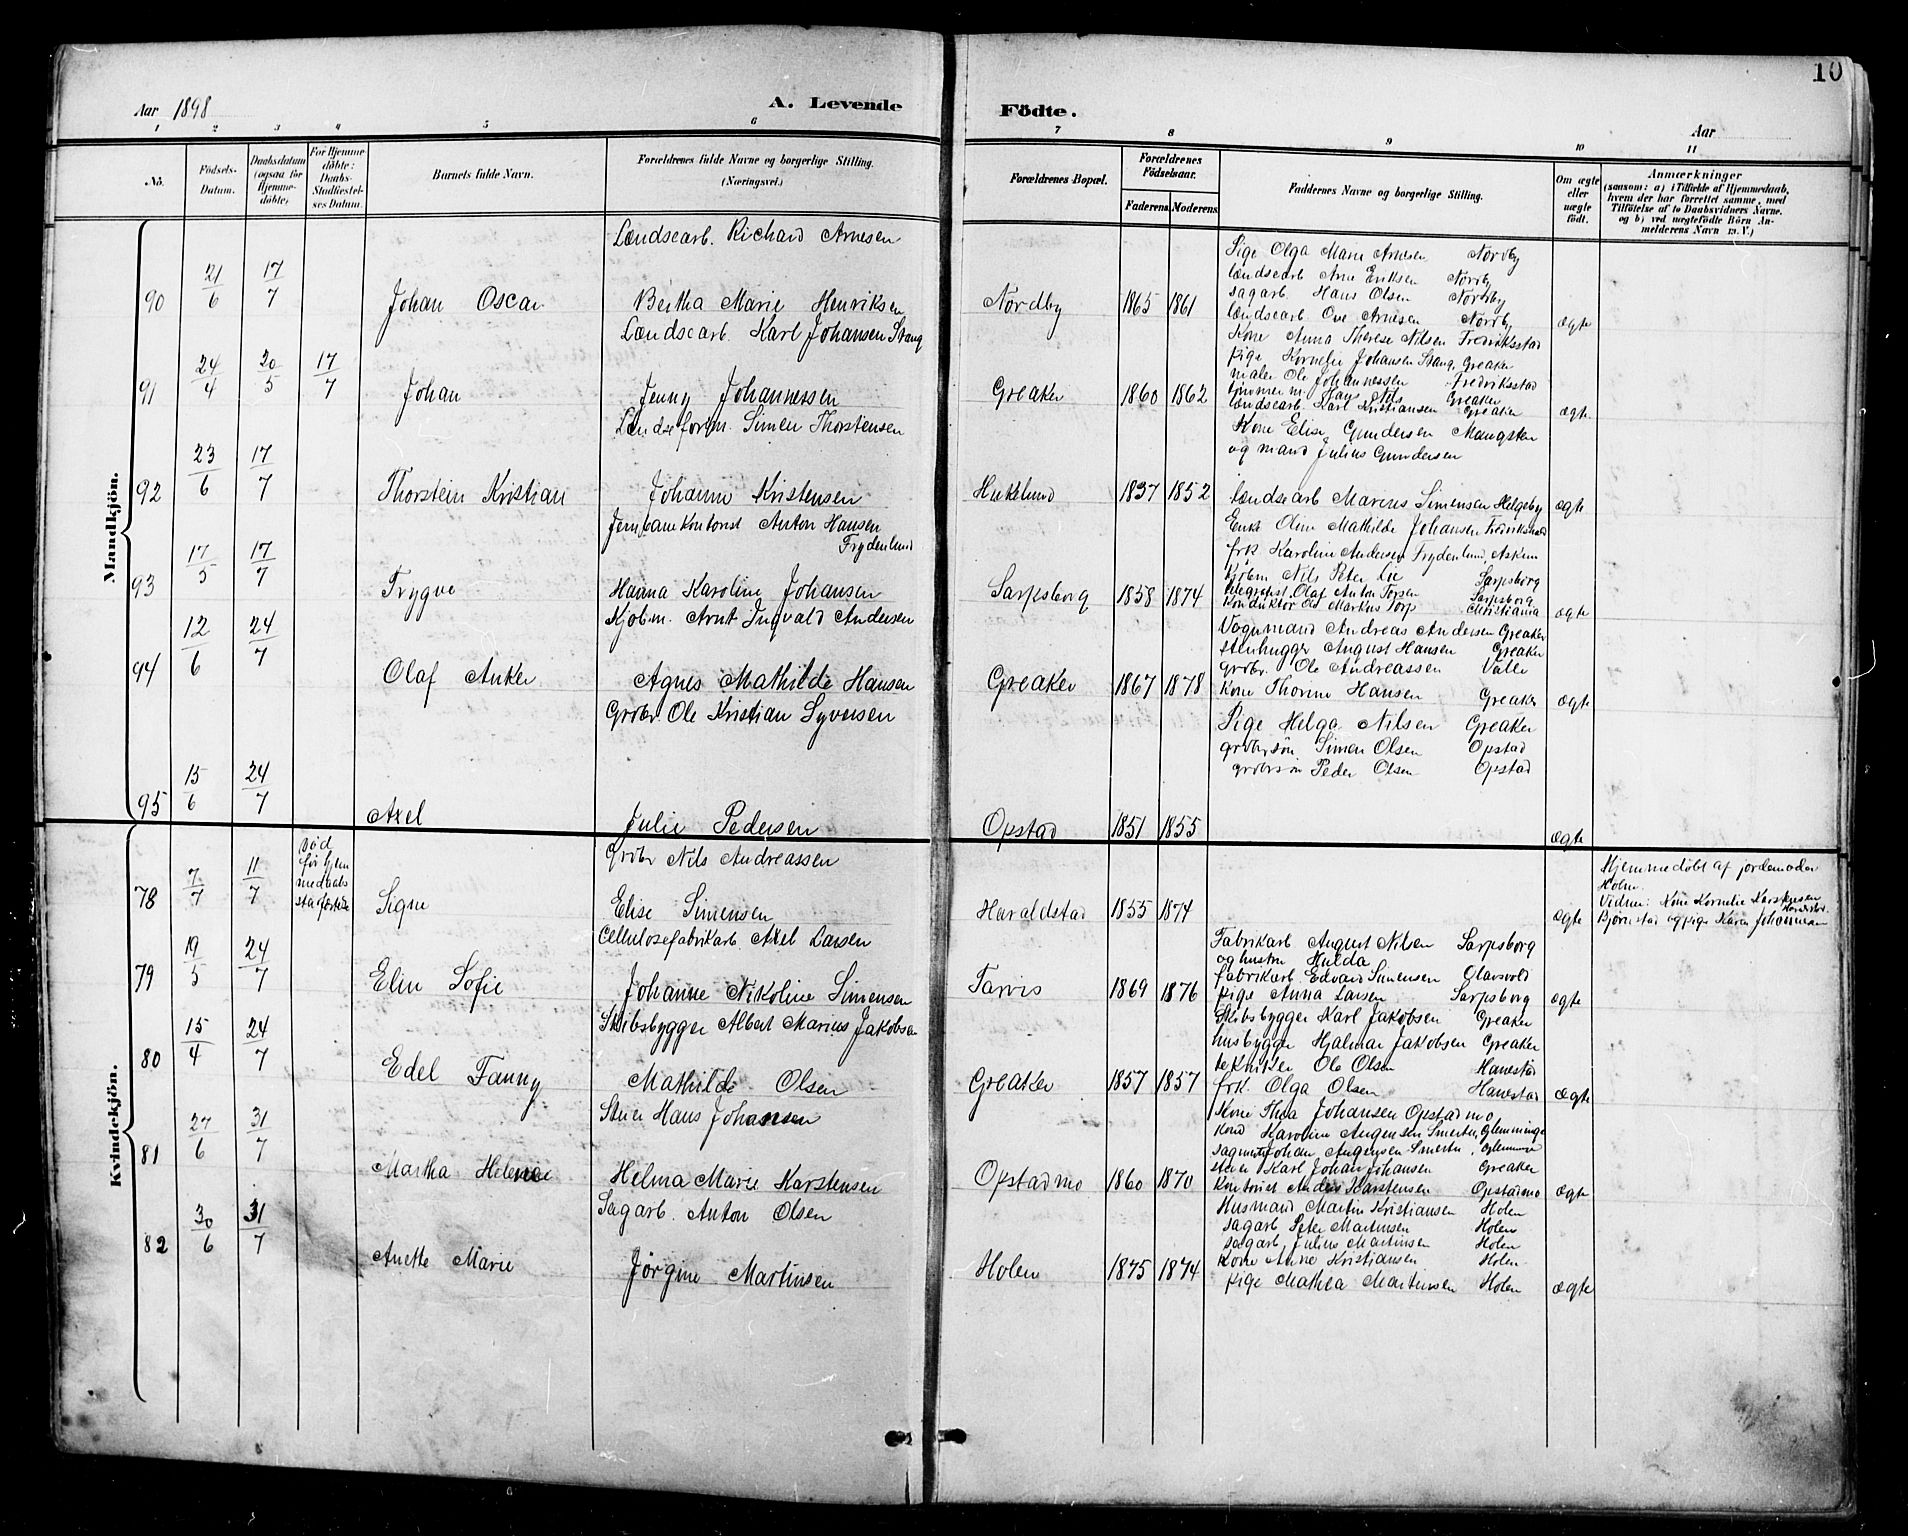 10
Aar 1898
A. Levende Födte.
Aar
1 2 3 4 5 6 7 8 9 10 11
No.
Födsels-Datum.
Daabsdatum (ogsaa for Hjemmedöbte)
For Hjemmedöbte: Daabs-Stadfæstelses Datum.
Barnets fulde Navn.
Forældrenes fulde Navne og borgerlige Stilling. (Næringsvei.)
Forældrenes Bopæl.
Forældrenes Födselsaar.
Faderens. Moderens.
Faddernes Navne og borgerlige Stilling.
Om ægte eller uægte födt.
Anmærkninger
(saasom: a) i Tilfælde af Hjemmedaab,
hvem der har forrettet samme, med
Tilföielse af to Daabsvidners Navne.
og b) ved uægtefödte Börn Anmelderens Navn o.s.V.)
Mandkjön.
Lændsearb. Richard Arnesen
90 21/6 17/7 Johan Oscar Bertha Marie Henriksen Nordby 1865 1861 ægte
Pige Olga Marie Arnesen Nordby
lændsearb Arne Eriksen Nordby
sagarb. Hans Olsen Nordby
lændsearb. Ove Arnesen Nordby
Lændsearb. Karl Johansen Stang
91 24/4 20/5 17/7 Johan Jenny Johannessen Greaker 1860 1862 ægte
Kone Anna Therese Nilsen Fredriksstad
pige Kornelie Johansen Stang, Greaker
maler Ole Johannessen Fredriksstad
Greaker
lændsearb. Karl Kristiansen Greaker
Lændseform. Simen Thorstensen
92 23/6 17/7 Thorstein Kristian Johanne Kristensen 1837 1852 ægte
Kone Elise Gundersen Mangsten
og mand Julius Gundersen
lændsearb Marius Simensen Helgeby
Jernbanekontorist Anton Hansen Frydenlund
93 17/5 17/7 Trygve Hanna Karoline Johansen Sarpsborg 1858 1874 ægte
Enke Oline Mathilde Johansen Fredriksstad
frk Karoline Andersen Frydenlund, Askim
Kjöbm Nils Peter Lie Sarpsborg
telegrafist Olaf Anton Torsen Sarpsborg
Konduktör Ole Markus Torp Christiania
Kjöbm. Arnt Ingvald Andersen
94 12/6 24/7 Olaf Anker Agnes Mathilde Hansen Greaker 1867 1878 ægte
Vognmand Andreas Andersen Greaker
stenhugger August Hansen Greaker
grdbr. Ole Andreassen Valle
Kone Thorine Hansen Greaker
Grdbr Ole Kristian Syversen
95 15/6 24/7 Axel Julie Pedersen Opstad 1851 1855 ægte
Pige Helga Nilsen Greaker
grdbrsön Simen Olsen Opstad
grdbrsön Peder Olsen Opstad
Kvindekjön.
Grdbr Nils Andreassen
78 7/7 11/7 död för hjemmedaabs stadfæstelse Signe Elise Simensen Haraldstad 1855 1874 ægte
Hjemmedøbt af jordemoder
Holm.
Vidner: Kone Kornelie Karstensen
Bjørnstad og pige Karen Johannesen
Cellulosefabrikarb. Axel Larsen
79 19/5 24/7 Elin Sofie Johanne Nikoline Simensen Tarvis 1869 1876 ægte
Fabrikarb August Nilsen Sarpsborg
og hustru Hulda
fabrikarb. Edvard Simensen Olavsvold
pige Anna Larsen Sarpsborg
Skibsbygger Albert Marius Jakobsen
80 15/4 24/7 Edel Fanny Mathilde Olsen Greaker 1857 1857 ægte
Skibsbygger Karl Jakobsen Greaker
husbygger Hjalmar Jakobsen Greaker
tekniker Ole Olsen Hanestad
frk. Olga Olsen Hanestad
Stuer Hans Johansen
81 27/6 31/7 Martha Helene Helma Marie Karstensen Opstadmo 1860 1870 ægte
Kone Thea Johansen Opstadmo
Kone Karoline Augensen Smertu, Glemminge
sagmester Johan Augensen Smertu, Glemminge
stuer Karl Johan Johansen Greaker
Kontorist Anders Karstensen Opstadmo
Sagarb. Anton Olsen
82 30/6 31/7 Anette Marie Jørgine Martinsen Holen 1875 1874 ægte
Husmand Martin Kristiansen Holen
sagarb Peter Martinsen Holen
sagarb. Julius Martinsen Holen
Kone Anne Kristiansen Holen
pige Mathea Martinsen Holen